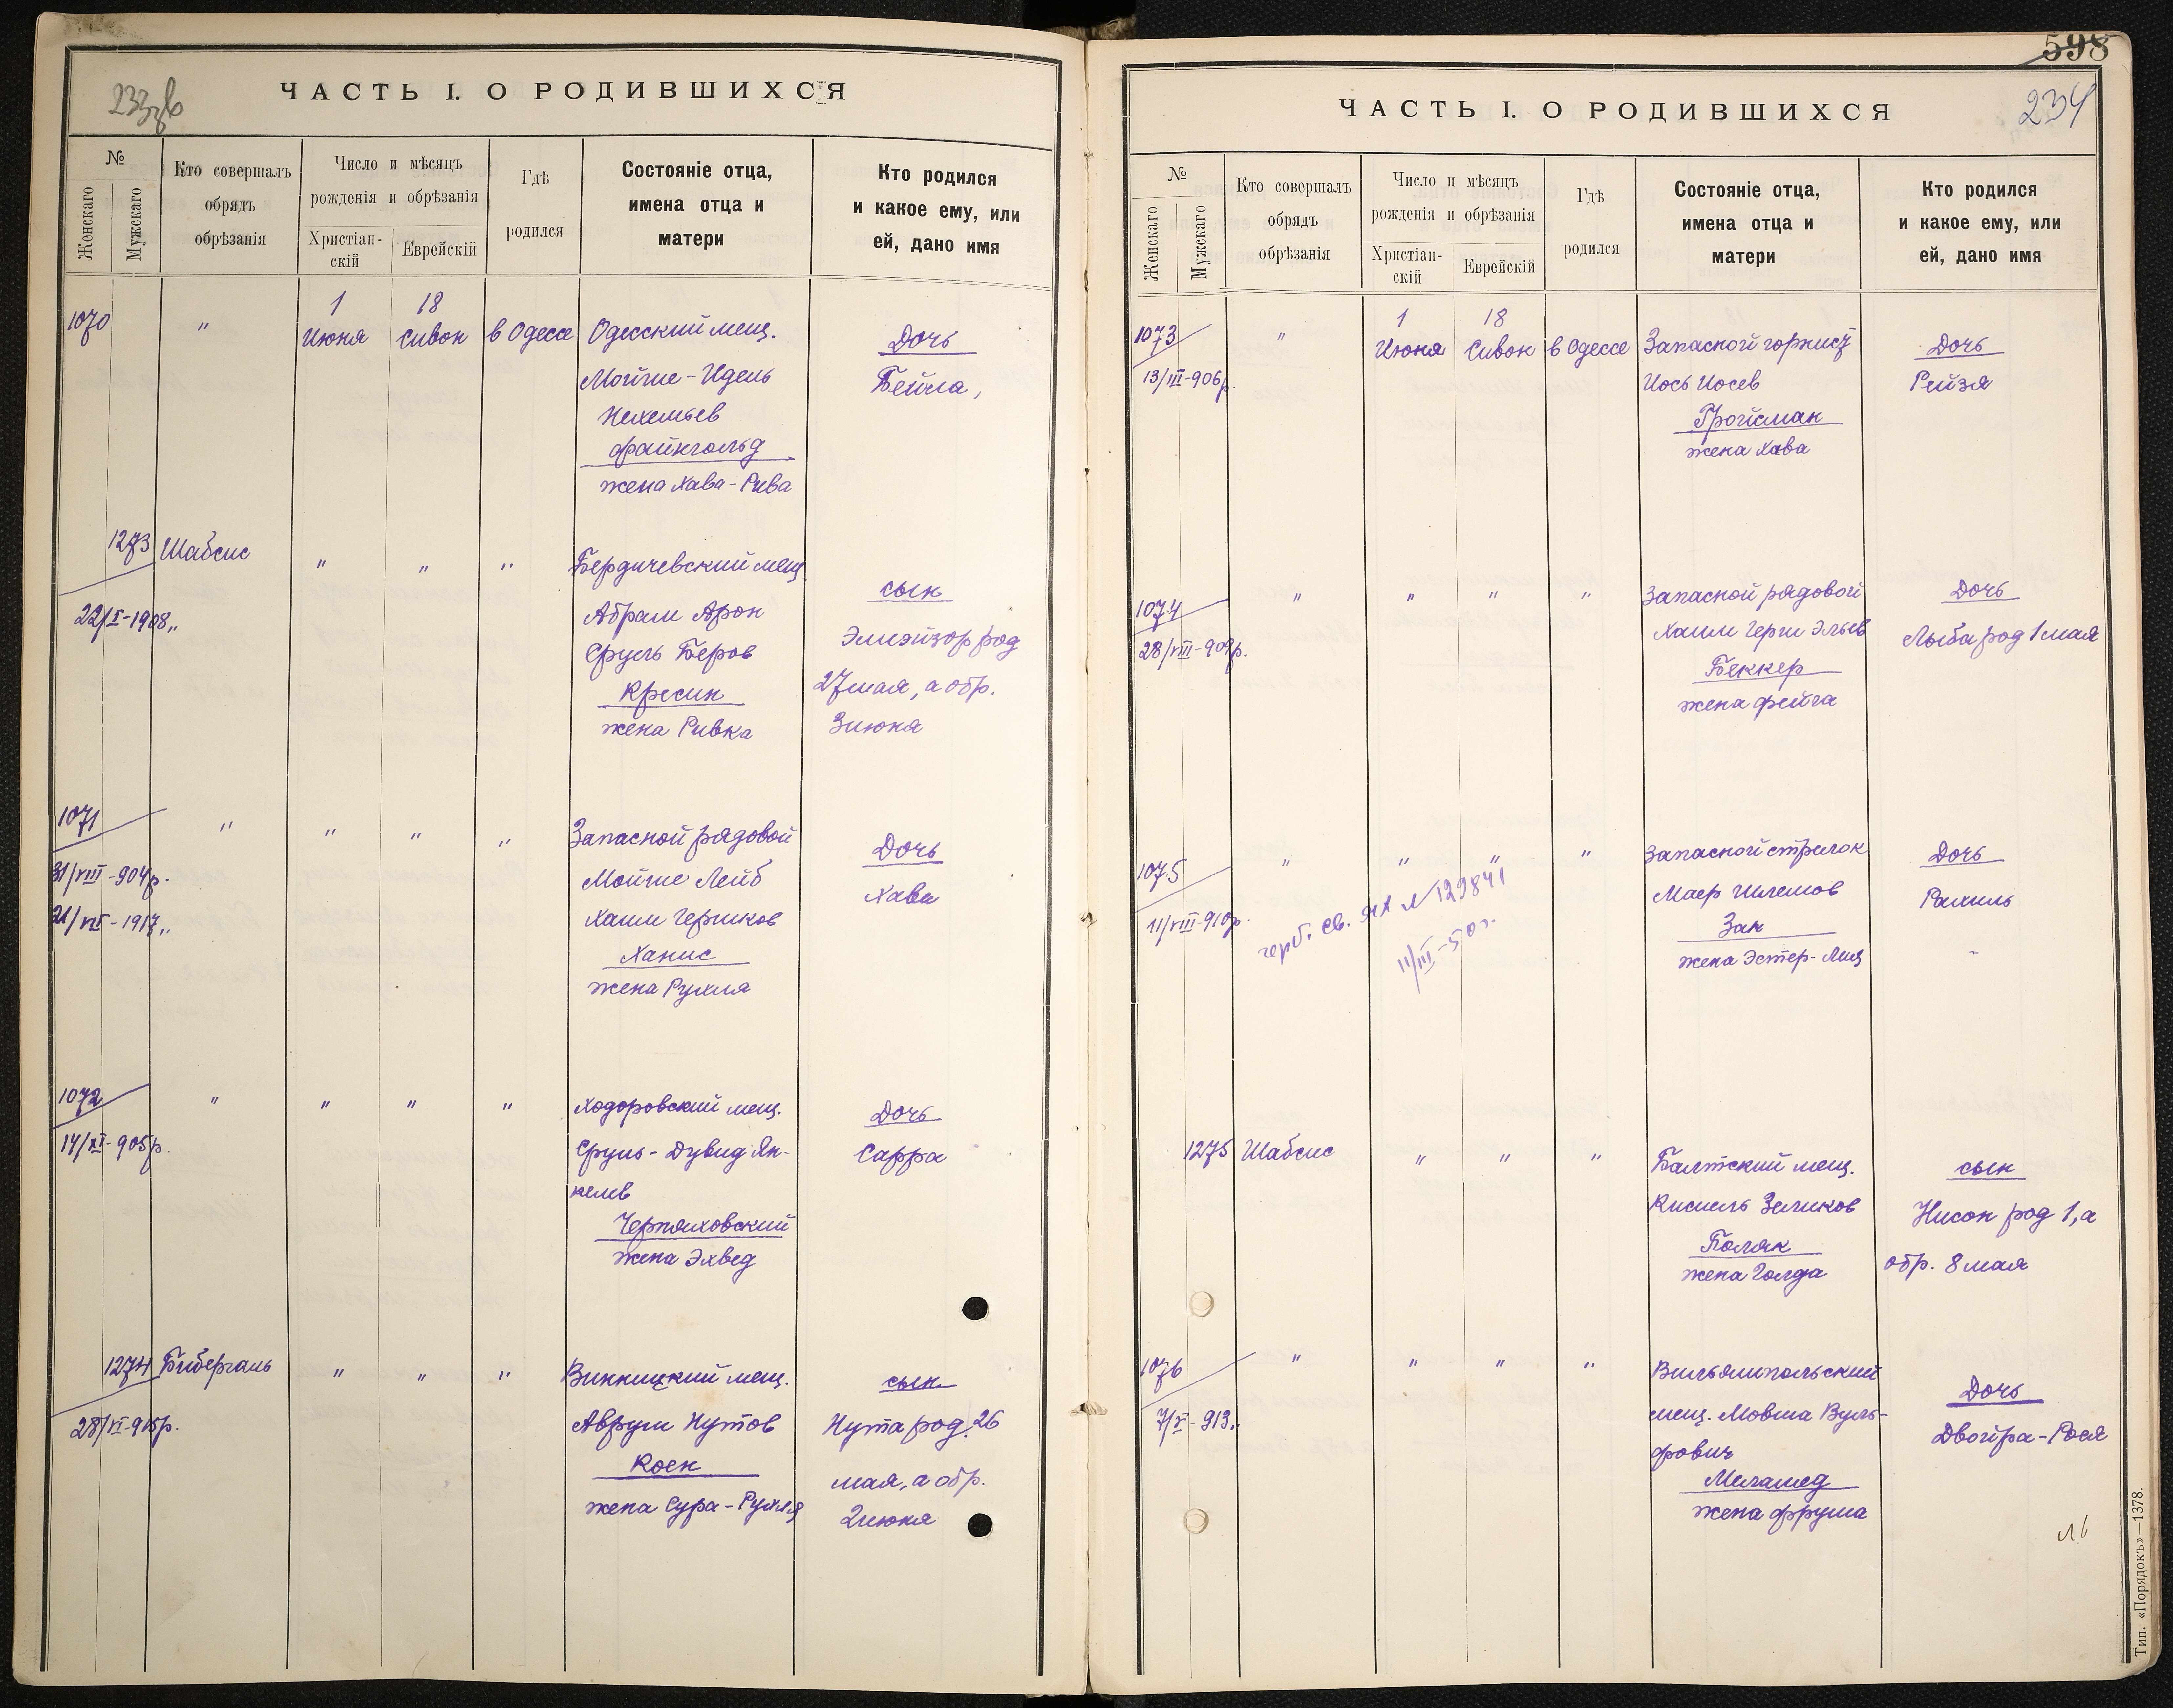 233об
ЧАСТЬ I. О РОДИВШИХСЯ
№
Женскаго
Мужскаго
Кто совершалъ
обрядъ
обрѣзанія
Число и мѣсяцъ
рожденія и обрѣзанія
Христіан-
скій
Еврейскій
Гдѣ
родился
Состояніе отца,
имена отца и
матери
Кто родился
и какое ему, или
ей, дано имя
1070
"
1
Июня
18
Сивон
в Одессе
Одесский мещ.
Мойше-Идель
Нехемьев
Файнгольд
жена Хава-Рива
Дочь
Бейла,
1273
22/I-1908,,
Шабсис
"
"
"
Бердичевский мещ.
Абрам Арон
Сруль Беров
Кресин
жена Ривка
сын
Элиэйзор род
27 мая, а обр.
3 июня
1071
31/VIII-904р.
21/VII-1917,,
"
"
"
"
Запасной рядовой
Мойше Лейб
Хаим Гершков
Ханис
жена Рухля
Дочь
Хава
1072
14/XI-905р.
"
"
"
"
Ходоровский мещ.
Сруль-Дувид Ян-
келев
Черняховский
жена Эхвед
Дочь
Сарра
1274
28/VI-915р.
Бибергаль
"
"
"
Винницкий мещ.
Аврум Нутов
Коен
жена Сура-Рухля
сын
Нута род. 26
мая, а обр.
2 июня
598
234
ЧАСТЬ I. О РОДИВШИХСЯ
№
Женскаго
Мужскаго
Кто совершалъ
обрядъ
обрѣзанія
Число и мѣсяцъ
рожденія и обрѣзанія
Христіан-
скій
Еврейскій
Гдѣ
родился
Состояніе отца,
имена отца и
матери
Кто родился
и какое ему, или
ей, дано имя
1073
13/III-906р.
"
1
Июня
18
Сивон
в Одессе
Запасной горнист
Иось Иосев
Гройсман
жена Хава
Дочь
Рейзя
1074
28/VIII-909р.
"
"
"
"
Запасной рядовой
Хаим Герш Эльев
Беккер
жена Фейга
Дочь
Лыба род 1 мая
1075
11/VIII-910р.
"
"
"
"
св. № 129841
11/III-50г.
Запасной стрелок
Маер Шлемов
Зак
жена Эстер-Лия
Дочь
Рахиль
1275
Шабсис
"
"
"
Балтский мещ.
Кисиель Зеликов
Поляк
жена Голда
сын
Нисон род 1, а
обр. 8 мая
1076
7/V-913.
"
"
"
"
Вильямпольский
мещ. Мовша Вуль-
фович
Меламед
жена Фрума
Дочь
Двойра-Рося
Тип. «Порядокъ»—1378.